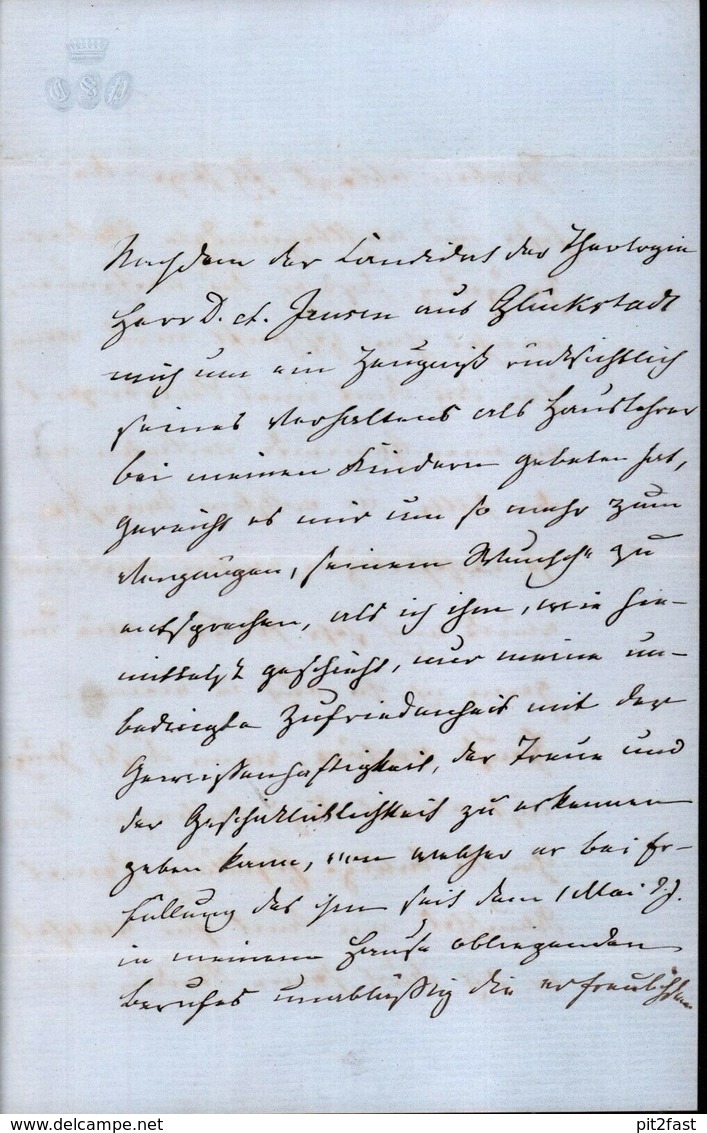 Nachdem der Candidat der Theologie
Herr D. A. Jensen aus Glückstadt
mich um ein Zeugniß rücksichtlich
seines Verhaltens als Hauslehrer
bei meinen Kindern gebeten hat,
gereicht es mir um so mehr zum
Vergnügen, seinem Wunsche zu
entsprechen, als ich ihm, wie hie-
mittelst geschieht, nur meine un-
bedingte Zufriedenheit mit der
Gewissenhaftigkeit, der Treue und
der Geschicklichkeit zu erkennen
geben kann, von welcher er bei Er-
füllung des ihm seit dem 1 Mai
in meinem Hause obliegenden
Berufes unablässig die erfreulichsten
www.delcampe.net
pit2fast